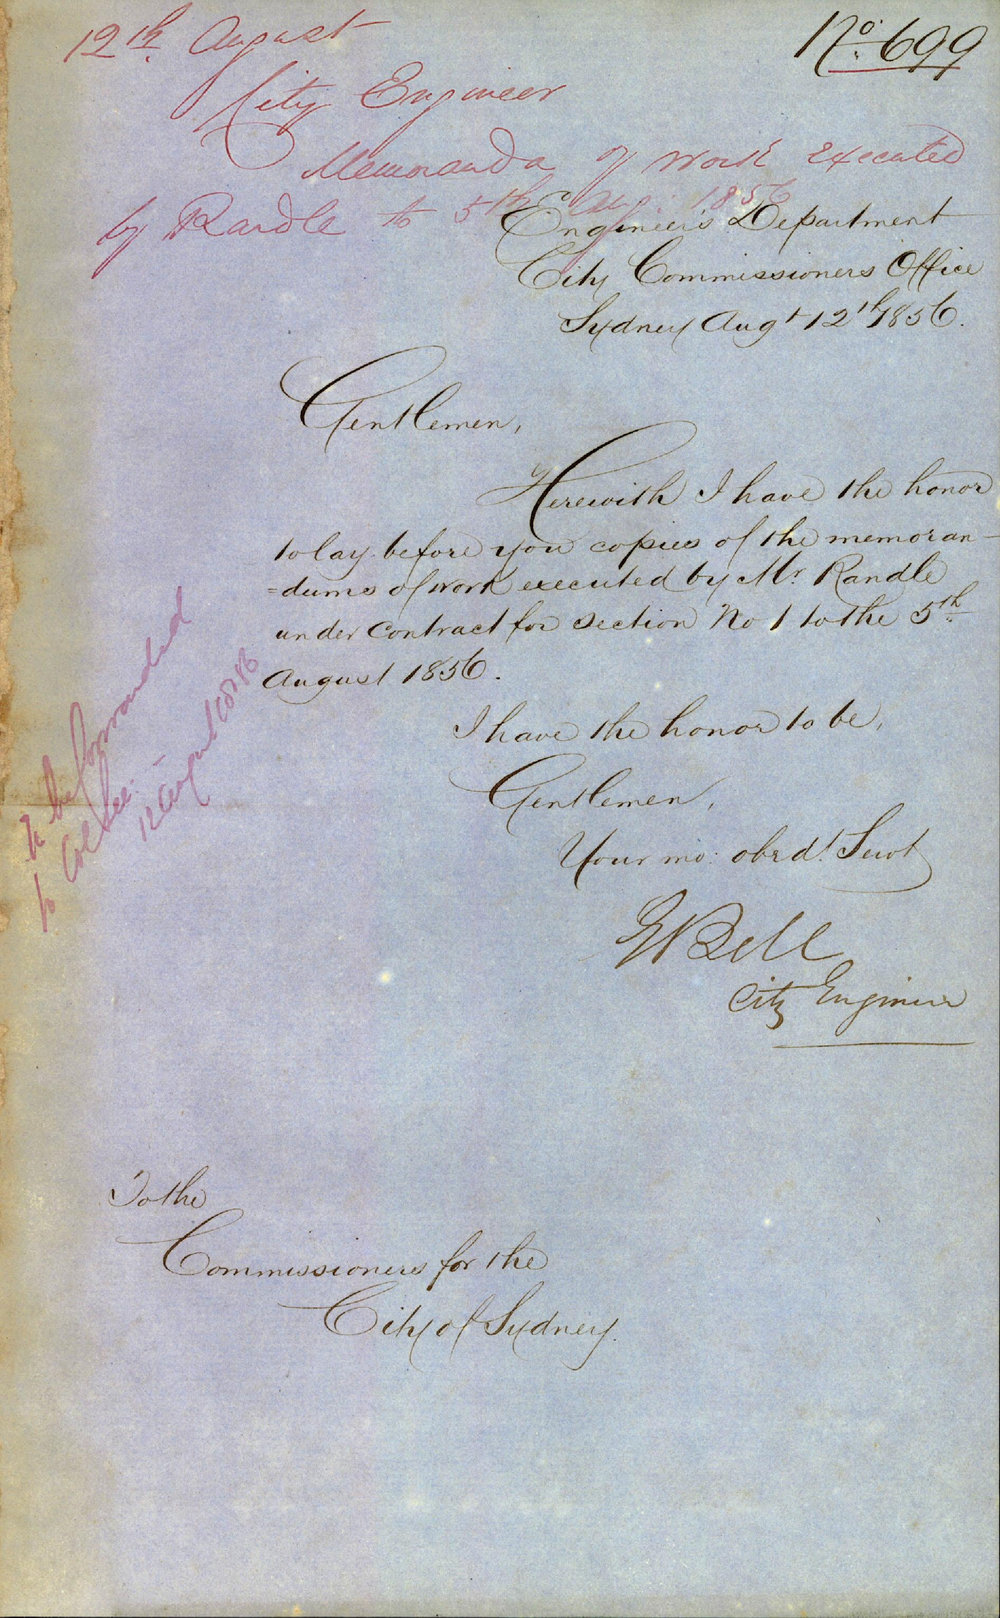 No. 699
12th. August
City Engineer
Memoranda of work executed
by Randle to 5th Aug: 1856
Engineer's Department
City Commissioners Office
Sydney Augt 12th 1856.
Gentlemen,
Herewith I have the honor
to lay before you copies of the memoran-
=dums of work executed by Mr. Randle
under contract for section No 1 to the 5th
August 1856.
I have the honor to be,
Gentlemen,
Your mo: obedt. Servt
EBell
City Engineer
To be forwarded
to Col
12 August
To the
Commissioners for the
City of Sydney.